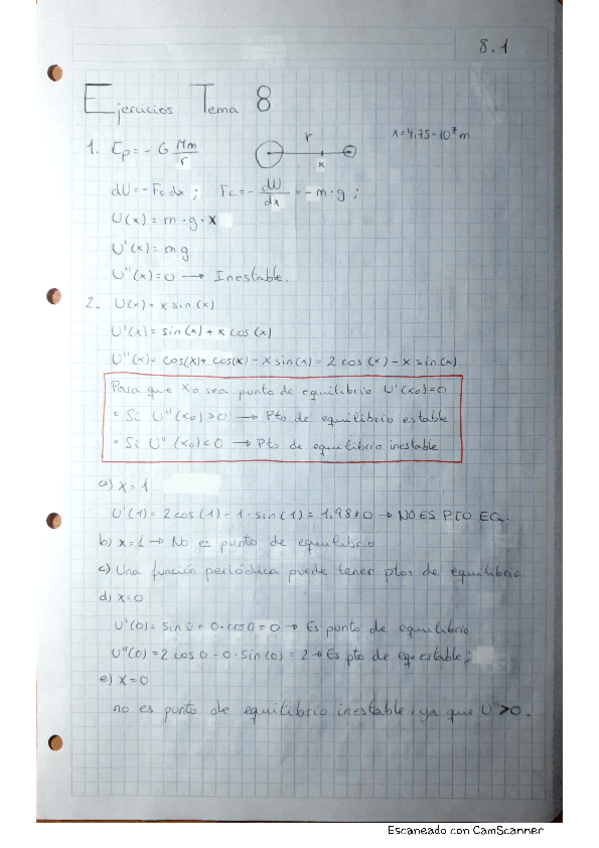 8.1
Ejercicios Tema 8
1. Ep = - G Mm/r
r
x
x = 4,75·10⁷ m
dU = - Fc dx ; Fc = - dU/dx = - m · g ;
U(x) = m · g · x
U'(x) = mg
U''(x) = 0 → Inestable.
2. U(x) = x sin(x)
U'(x) = sin(x) + x cos(x)
U''(x) = cos(x) + cos(x) - x sin(x) = 2 cos(x) - x sin(x)
Para que x₀ sea punto de equilibrio U'(x₀)=0
• Si U''(x₀) > 0 → Pto de equilibrio estable
• Si U''(x₀) < 0 → Pto de equilibrio inestable
a) x = 1
U'(1) = 2 cos(1) - 1 · sin(1) = 1,98 ≠ 0 → NO ES PTO EQ.
b) x = 1 → No es punto de equilibrio
c) Una función periódica puede tener ptos de equilibrio
d) x = 0
U'(0) = sin 0 + 0 · cos 0 = 0 → Es punto de equilibrio
U''(0) = 2 cos 0 - 0 · sin(0) = 2 → Es pto de equ estable;
e) x = 0
no es punto de equilibrio inestable, ya que U'' > 0.
Escaneado con CamScanner